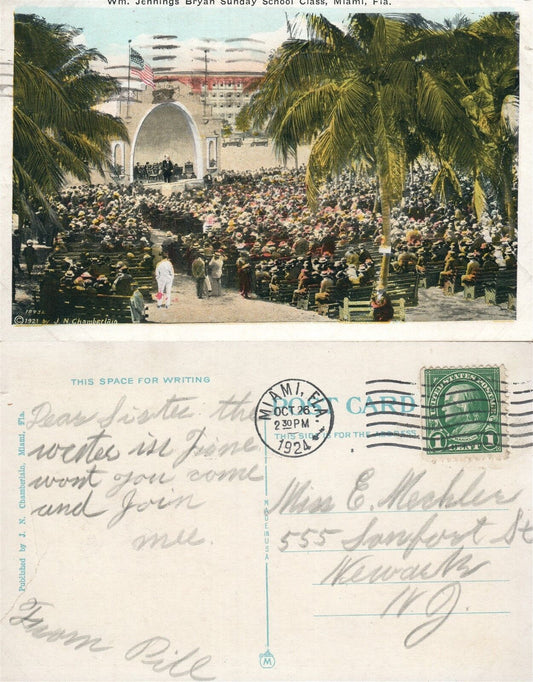 Wm. Jennings Bryan Sunday School Class, Miami, Fla.
© 1921 by J. N. Chamberlain
THIS SPACE FOR WRITING
POST CARD
THIS SIDE IS FOR THE ADDRESS
MIAMI, FLA.
OCT 26
2 30 PM
1924
UNITED STATES POSTAGE
1 1
Dear Sister the
wether is fine
wont you come
and Join
mee.
From Pill
Miss E. Mechler
555 Sanfort St
Newark
N.J.
Published by J. N. Chamberlain, Miami, Fla.
MADE IN USA
M